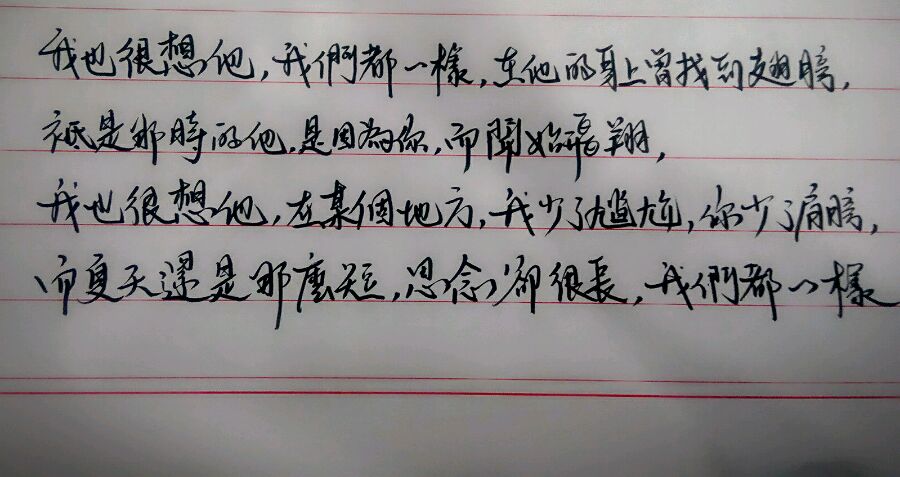 我也很想他,我們都一樣,在他的身上曾找到翅膀,
祗是那時的他,是因為你,而開始飛翔,
我也很想他,在某個地方,我少了尷尬,你少了肩膀,
而夏天還是那麼短,思念卻很長,我們都一樣